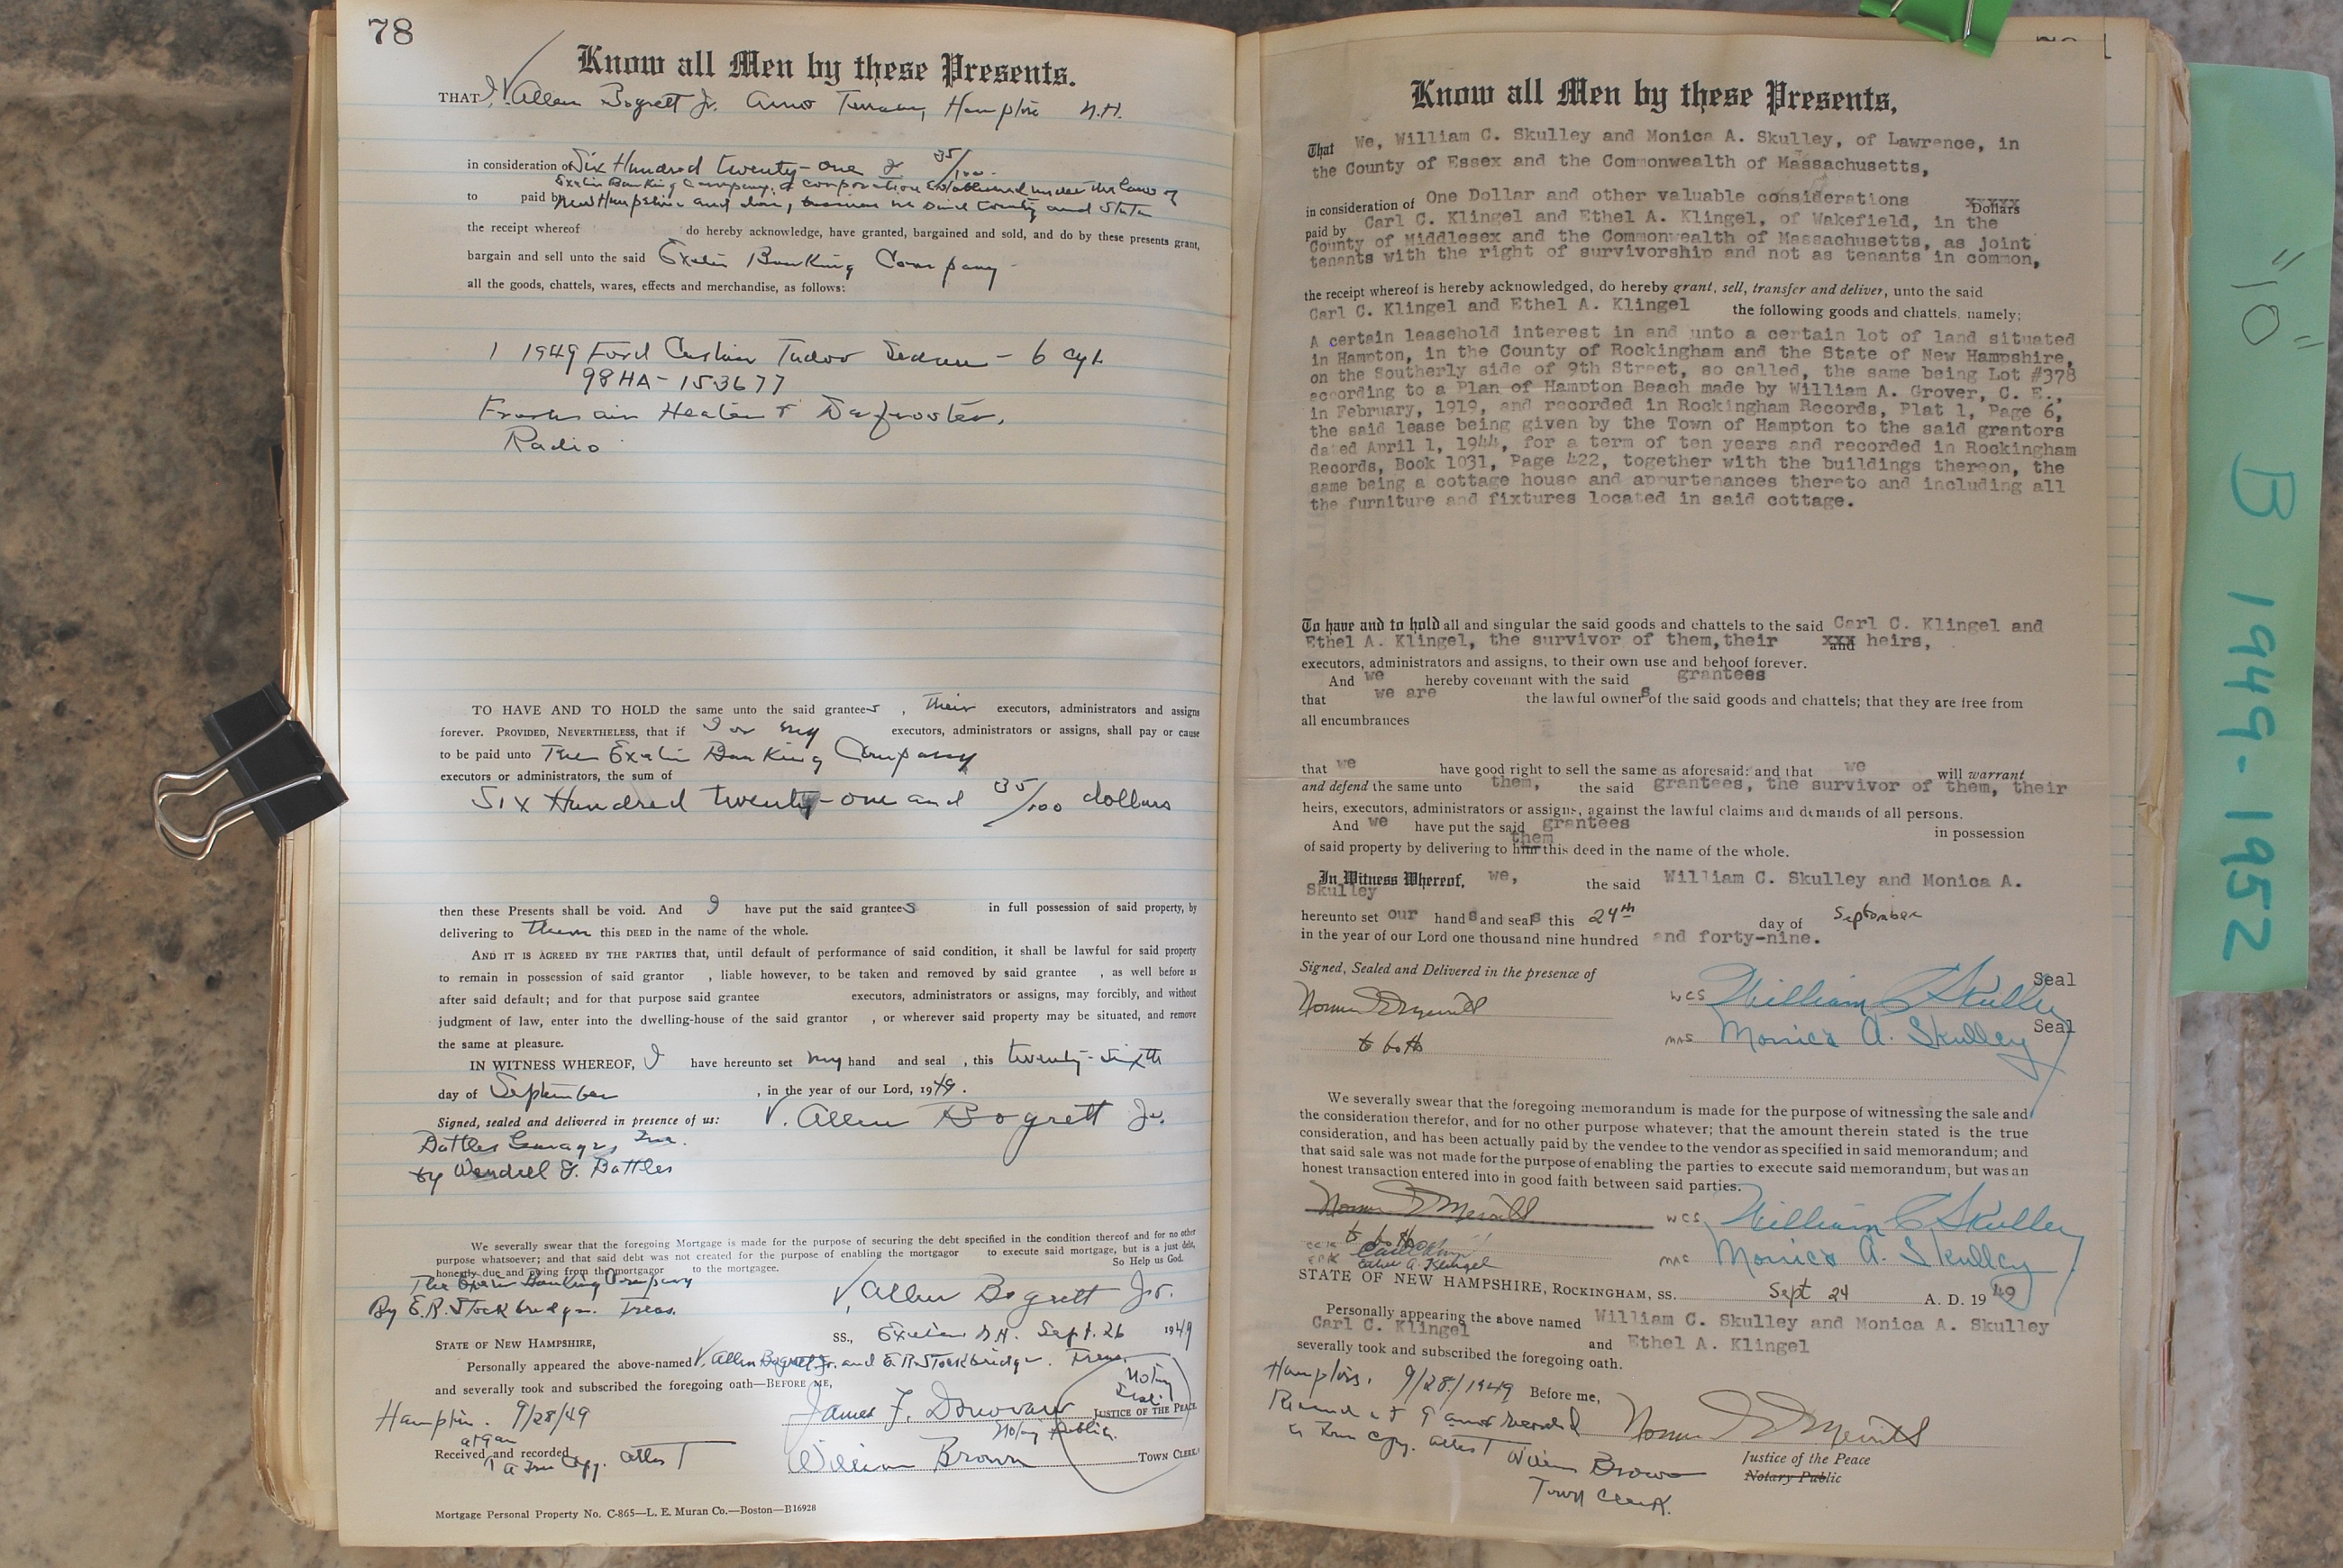 78
Know all Men by these Presents.
THAT I, V. Allen Bogrett Jr. Terrace, Hampton N.H.
in consideration of Six Hundred twenty-one & 35/100
Exeter Banking Company, a corporation established under the laws of
to paid by New Hampshire and business in said County and State
the receipt whereof do hereby acknowledge, have granted, bargained and sold, and do by these presents grant,
bargain and sell unto the said Exeter Banking Company
all the goods, chattels, wares, effects and merchandise, as follows:
1 1949 Ford Custom Tudor Sedan - 6 cyl
98HA-153677
Fresh air Heater & Defroster,
Radio
TO HAVE AND TO HOLD the same unto the said grantees, their executors, administrators and assigns
forever. PROVIDED, NEVERTHELESS, that if I or my executors, administrators or assigns, shall pay or cause
to be paid unto The Exeter Banking Company
executors or administrators, the sum of
Six Hundred twenty-one and 35/100 dollars
then these Presents shall be void. And I have put the said grantees in full possession of said property, by
delivering to them this DEED in the name of the whole.
AND IT IS AGREED BY THE PARTIES that, until default of performance of said condition, it shall be lawful for said property
to remain in possession of said grantor , liable however, to be taken and removed by said grantee , as well before as
after said default; and for that purpose said grantee executors, administrators or assigns, may forcibly, and without
judgment of law, enter into the dwelling-house of the said grantor , or wherever said property may be situated, and remove
the same at pleasure.
IN WITNESS WHEREOF, I have hereunto set my hand and seal , this twenty-sixth
day of September , in the year of our Lord, 1949.
Signed, sealed and delivered in presence of us: V. Allen Bogrett Jr.
Battles Garage, Inc.
by Wendell J. Battles
We severally swear that the foregoing Mortgage is made for the purpose of securing the debt specified in the condition thereof and for no other
purpose whatsoever; and that said debt was not created for the purpose of enabling the mortgagor to execute said mortgage, but is a just debt,
honestly due and owing from the mortgagor to the mortgagee. So Help us God.
The Exeter Banking Company
By E.R. Stockbridge. Treas. V. Allen Bogrett Jr.
STATE OF NEW HAMPSHIRE, SS., Exeter N.H. Sept. 26 1949
Personally appeared the above-named V. Allen Bogrett Jr. and E.R. Stockbridge. Treas.
and severally took and subscribed the foregoing oath—BEFORE ME,
Notary Seal
Hampton. 9/28/49 James F. Donovan JUSTICE OF THE PEACE
Notary Public.
at 9 am
Received and recorded
A True Copy. attest William Brown TOWN CLERK
Mortgage Personal Property No. C-865—L. E. Muran Co.—Boston—B16928
Know all Men by these Presents,
That We, William C. Skulley and Monica A. Skulley, of Lawrence, in
the County of Essex and the Commonwealth of Massachusetts,
in consideration of One Dollar and other valuable considerations xxxxx Dollars
paid by Carl C. Klingel and Ethel A. Klingel, of Wakefield, in the
County of Middlesex and the Commonwealth of Massachusetts, as joint
tenants with the right of survivorship and not as tenants in common,
the receipt whereof is hereby acknowledged, do hereby grant, sell, transfer and deliver, unto the said
Carl C. Klingel and Ethel A. Klingel the following goods and chattels, namely;
A certain leasehold interest in and unto a certain lot of land situated
in Hampton, in the County of Rockingham and the State of New Hampshire,
on the Southerly side of 9th Street, so called, the same being Lot #378
according to a Plan of Hampton Beach made by William A. Grover, C. E.,
in February, 1919, and recorded in Rockingham Records, Plat 1, Page 6,
the said lease being given by the Town of Hampton to the said grantors
dated April 1, 1944, for a term of ten years and recorded in Rockingham
Records, Book 1031, Page 422, together with the buildings thereon, the
same being a cottage house and appurtenances thereto and including all
the furniture and fixtures located in said cottage.
To have and to hold all and singular the said goods and chattels to the said Carl C. Klingel and
Ethel A. Klingel, the survivor of them, their xxx and heirs,
executors, administrators and assigns, to their own use and behoof forever.
And we hereby covenant with the said grantees
that we are the lawful owners of the said goods and chattels; that they are free from
all encumbrances
that we have good right to sell the same as aforesaid: and that we will warrant
and defend the same unto them, the said grantees, the survivor of them, their
heirs, executors, administrators or assigns, against the lawful claims and demands of all persons.
And we have put the said grantees in possession
them
of said property by delivering to him this deed in the name of the whole.
In Witness Whereof, we, the said William C. Skulley and Monica A.
Skulley
hereunto set our hands and seals this 24th day of September
in the year of our Lord one thousand nine hundred and forty-nine.
Signed, Sealed and Delivered in the presence of
Norman D Merrill WCS William C Skulley Seal
to both MAS Monica A. Skulley Seal
We severally swear that the foregoing memorandum is made for the purpose of witnessing the sale and
the consideration therefor, and for no other purpose whatever; that the amount therein stated is the true
consideration, and has been actually paid by the vendee to the vendor as specified in said memorandum; and
that said sale was not made for the purpose of enabling the parties to execute said memorandum, but was an
honest transaction entered into in good faith between said parties.
Norman D Merrill WCS William C Skulley
to both MAS Monica A. Skulley
Carl C Klingel
Ethel A. Klingel
STATE OF NEW HAMPSHIRE, ROCKINGHAM, SS. Sept 24 A. D. 1949
Personally appearing the above named William C. Skulley and Monica A. Skulley
Carl C. Klingel and Ethel A. Klingel
severally took and subscribed the foregoing oath.
Hampton, 9/28/1949 Before me,
Received at 9 am & recorded Norman D Merrill
a True Copy. attest William Brown Justice of the Peace
Notary Public
Town Clerk.
"10" B 1949-1952